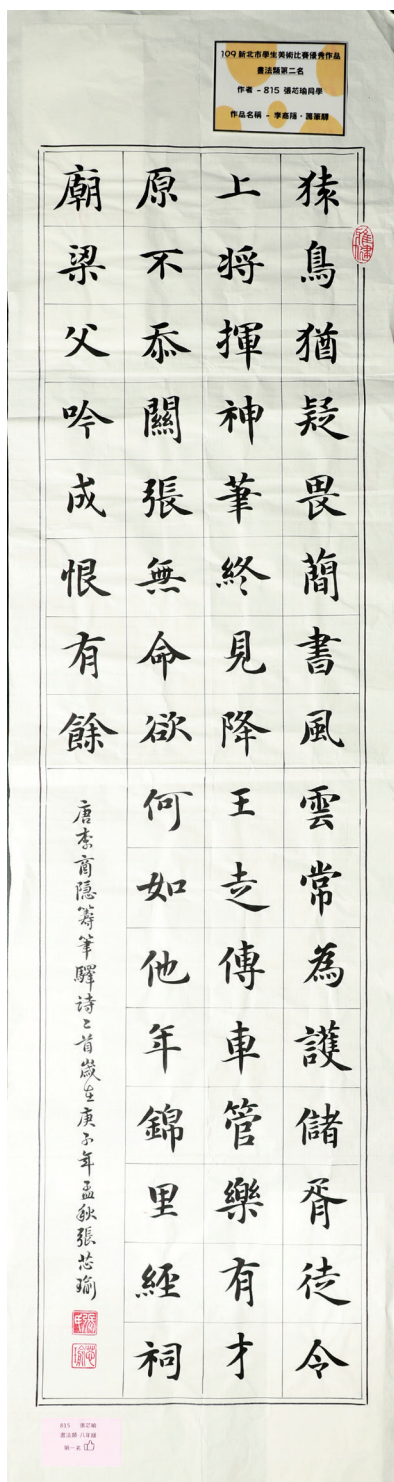 109 新北市學生美術比賽優秀作品
書法類第二名
作者 - 815 張芯瑜同學
作品名稱 - 李商隱‧籌筆驛
猿鳥猶疑畏簡書風雲常為護儲胥徒令
上将揮神筆終見降王走傳車管樂有才
原不忝關張無命欲何如他年錦里經祠
廟梁父吟成恨有餘
唐李商隐籌筆驛詩乙首歲在庚子年孟秋張芯瑜
張氏
芯瑜
815 張芯瑜
書法類 八年級
第一名